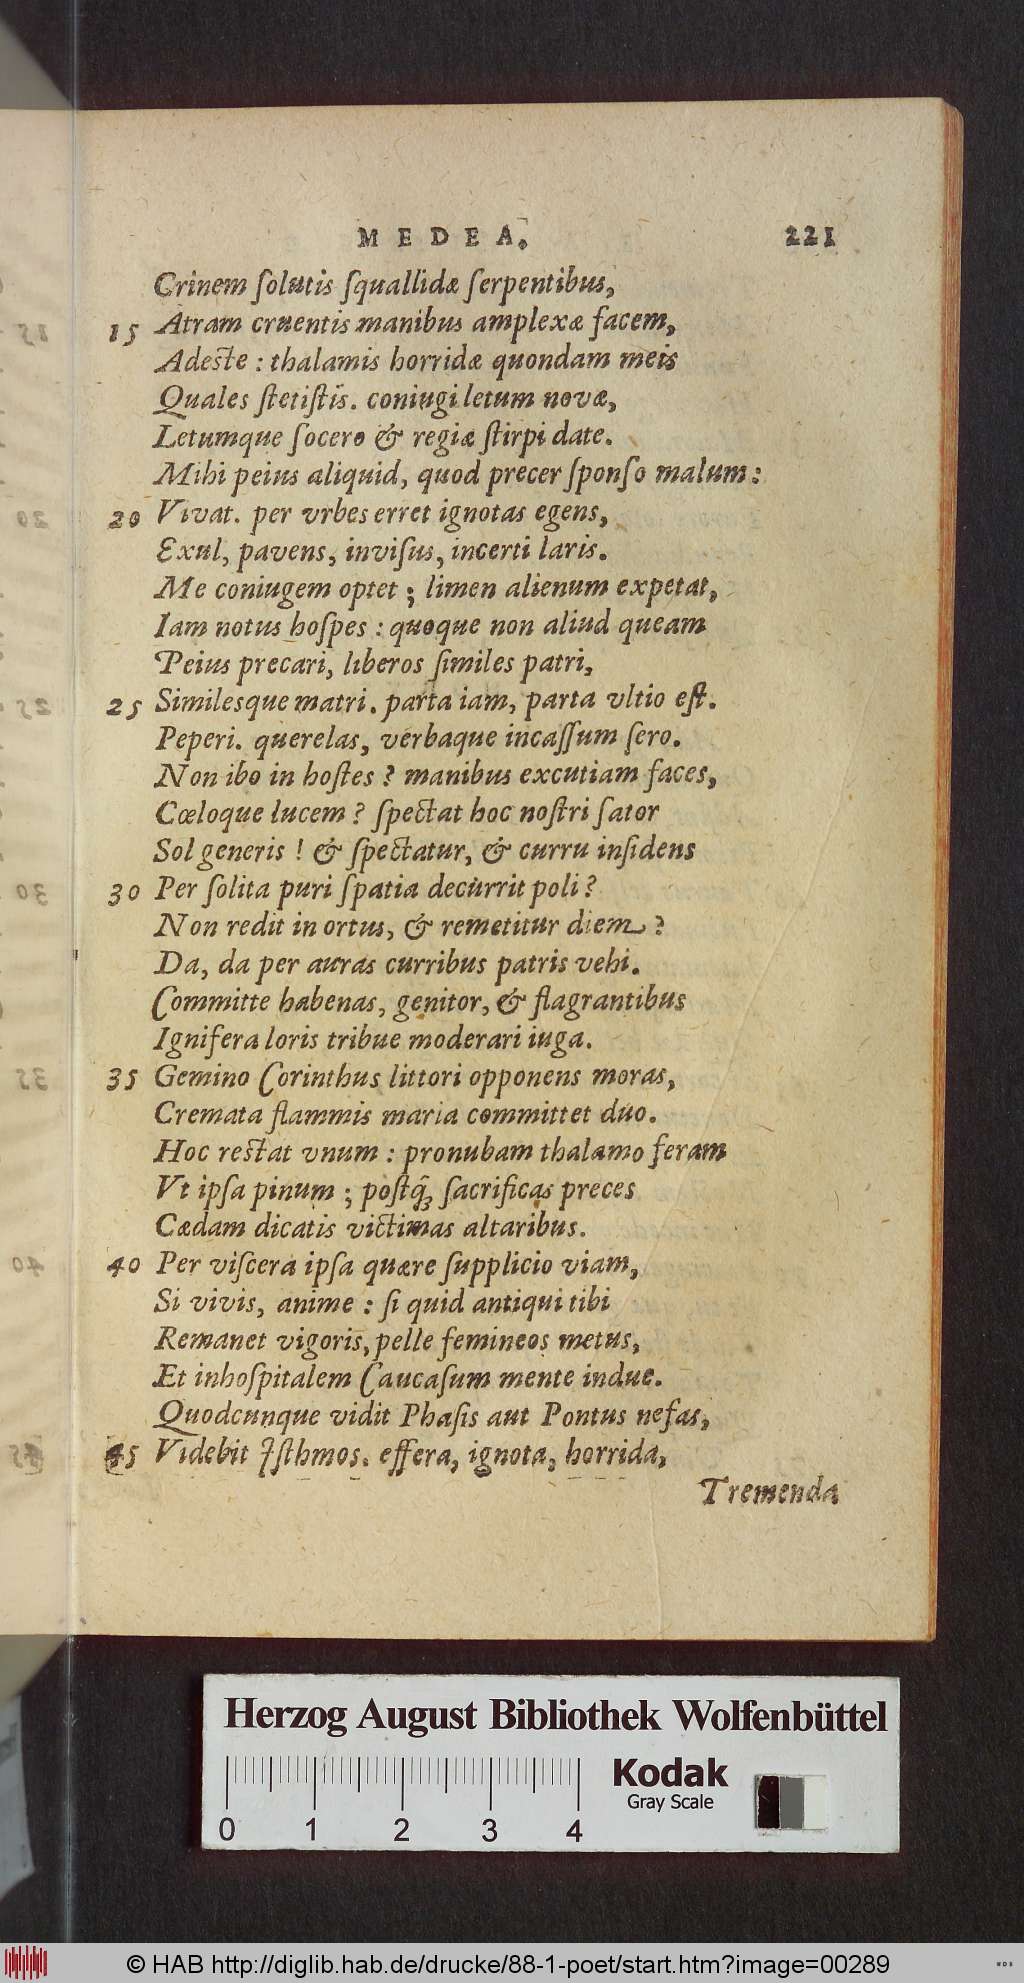 MEDEA. 221
Crinem ſolutis ſquallidæ ſerpentibus,
15 Atram cruentis manibus amplexæ facem,
Adeste : thalamis horridæ quondam meis
Quales ſtetiſtis. coniugi letum novæ,
Letumque ſocero & regiæ ſtirpi date.
Mihi peius aliquid, quod precer ſponſo malum :
20 Vivat. per vrbes erret ignotas egens,
Exul, pavens, inviſus, incerti laris.
Me coniugem optet ; limen alienum expetat,
Iam notus hoſpes : quoque non aliud queam
Peius precari, liberos ſimiles patri,
25 Similesque matri. parta iam, parta vltio eſt.
Peperi. querelas, verbaque incaſſum ſero.
Non ibo in hoſtes ? manibus excutiam faces,
Cœloque lucem ? ſpectat hoc noſtri ſator
Sol generis ! & ſpectatur, & curru inſidens
30 Per ſolita puri ſpatia decurrit poli ?
Non redit in ortus, & remetitur diem ?
Da, da per auras curribus patris vehi.
Committe habenas, genitor, & flagrantibus
Ignifera loris tribue moderari iuga.
35 Gemino Corinthus littori opponens moras,
Cremata flammis maria committet duo.
Hoc restat vnum : pronubam thalamo feram
Vt ipſa pinum ; poſtq́ꝫ ſacrificas preces
Cædam dicatis victimas altaribus.
40 Per viſcera ipſa quære ſupplicio viam,
Si vivis, anime : ſi quid antiqui tibi
Remanet vigoris, pelle femineos metus,
Et inhoſpitalem Caucaſum mente indue.
Quodcunque vidit Phaſis aut Pontus nefas,
45 Videbit Iſthmos. effera, ignota, horrida,
Tremenda
Herzog August Bibliothek Wolfenbüttel
Kodak
Gray Scale
0 1 2 3 4
© HAB http://diglib.hab.de/drucke/88-1-poet/start.htm?image=00289